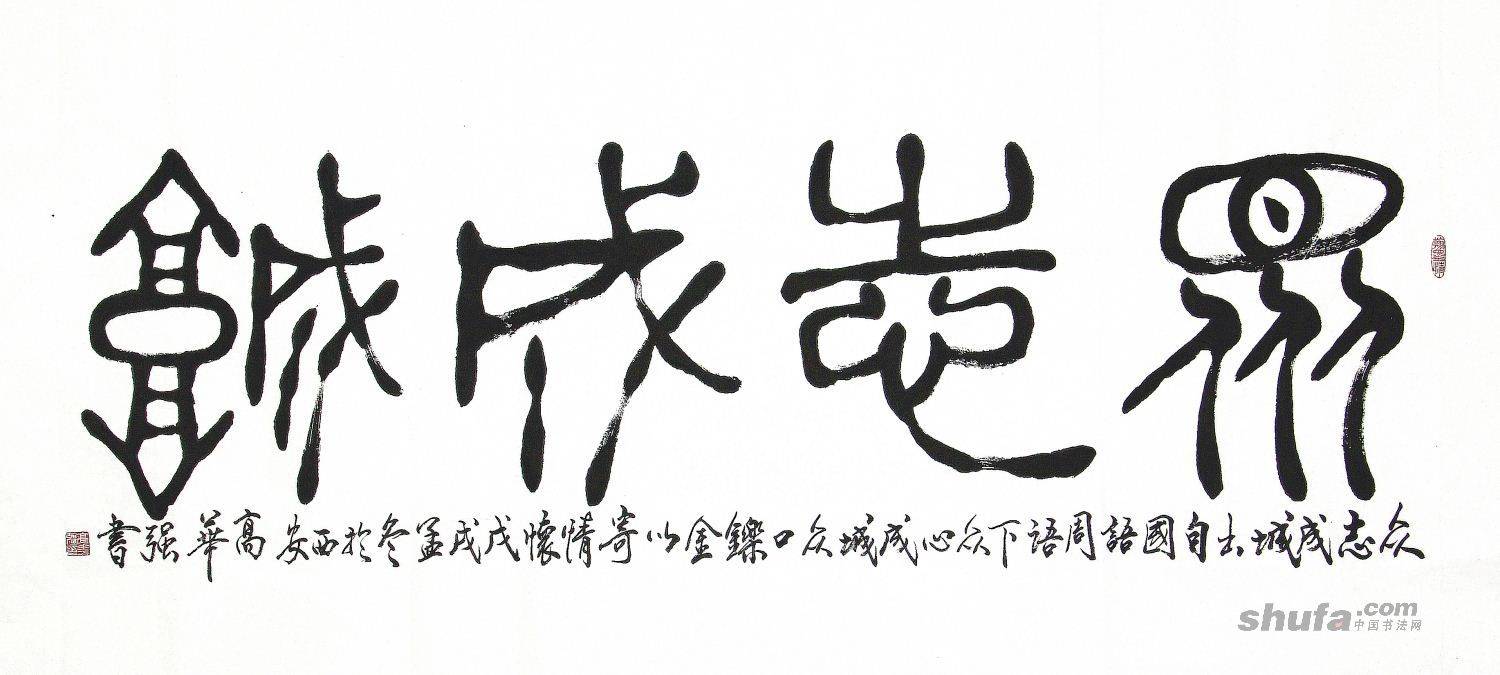 眾志成城
众志成城出自國語周語下众心成城众口鑠金以寄情懷戊戌孟冬於西安高華强書
shufa.com
中国书法网